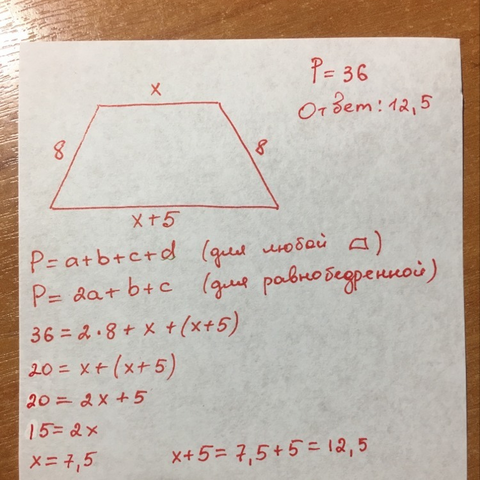 P = 36
Ответ: 12,5
x
8
8
x+5
P = a+b+c+d (для любой ⏢)
P = 2a+b+c (для равнобедренной)
36 = 2·8 + x + (x+5)
20 = x + (x+5)
20 = 2x + 5
15 = 2x
x = 7,5 x+5 = 7,5+5 = 12,5